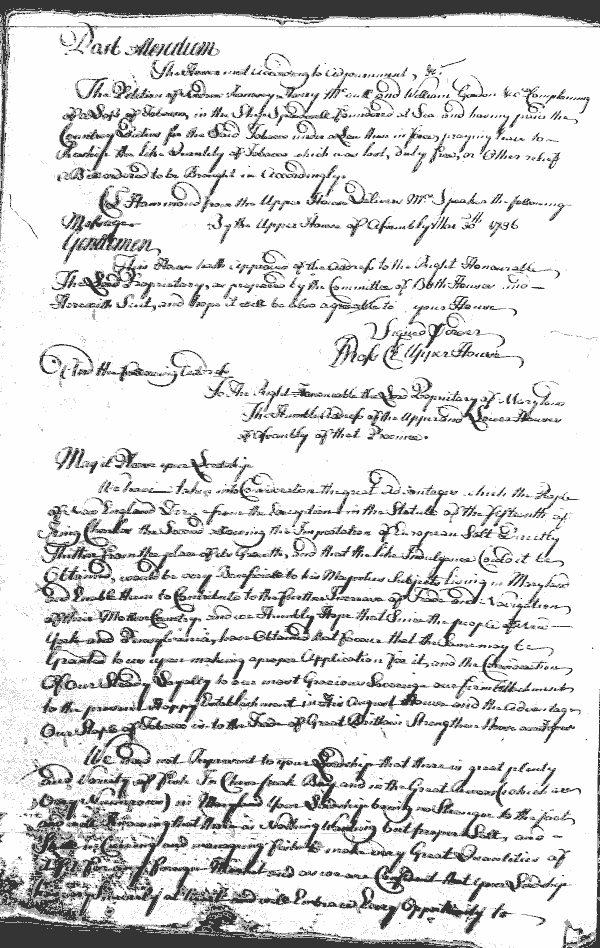 Post Meridium
The House met according to adjournment, &c.
The Petition of and William Gordon &c. Complaining
of a Loss of Tobacco, in the Ship Foundered at Sea and having
Country Duties for the Said Tobacco under a Law then in force, praying leave to
the like Quantity of Tobacco which was lost, duty free, or Other relief
Bill ordered to be Brought in Accordingly.
Col. Hammond from the Upper House Delivers Mr. Speaker the following
Message By the Upper House of Assembly 1736
Gentlemen
This House hath approved of the Address to the Right Honourable
The Lord Proprietary, as prepared by the Committee of Both Houses
Herewith Sent, and hope it will be also agreeable to your House
Signed p Order
Cl Upper House
And the following Address
To the Right Honourable the Lord Proprietary of Maryland
The Humble Address of the Upper and Lower Houses
of Assembly of that Province.
May it Please your Lordship
We have taken into Consideration the great Advantages which the People
of New England Derive from the Exception in the Statute of the fifteenth of
King Charles the Second allowing the Importation of European Salt Directly
thither from the place of its Growth, and that the like Indulgence Could it be
Obtained, would be very Beneficial to his Majesties Subjects Living in Maryland
and Enable them to Contribute to the further Increase of Trade and Navigation
of their Mother Country, and we Humbly Hope that Since the people of New
York and Pensilvania, have Obtained that favour that the Same may be
Granted to us upon making a proper Application for it, and the Consideration
Of Our Steady Loyalty to our most Gracious Sovereign our firm Attachment
to the present Happy Establishment in His August House and the Advantage
Our Staple of Tobacco is to the Trade of Great Brittain Strengthen those
We need not Represent to your Lordship that there is great plenty
and Variety of fish In Chesapeak Bay and in the Great Rivers (which are
Very Numerous) in Maryland Your Lordship being no Stranger to the fact
and that there is Nothing Wanting but proper Salt, and
Skill in Curing and managing fish to make very Great Quantities of
for any foreign Market and as we are Confident that Your Lordship
at heart and will Embrace Every Oppertunity to